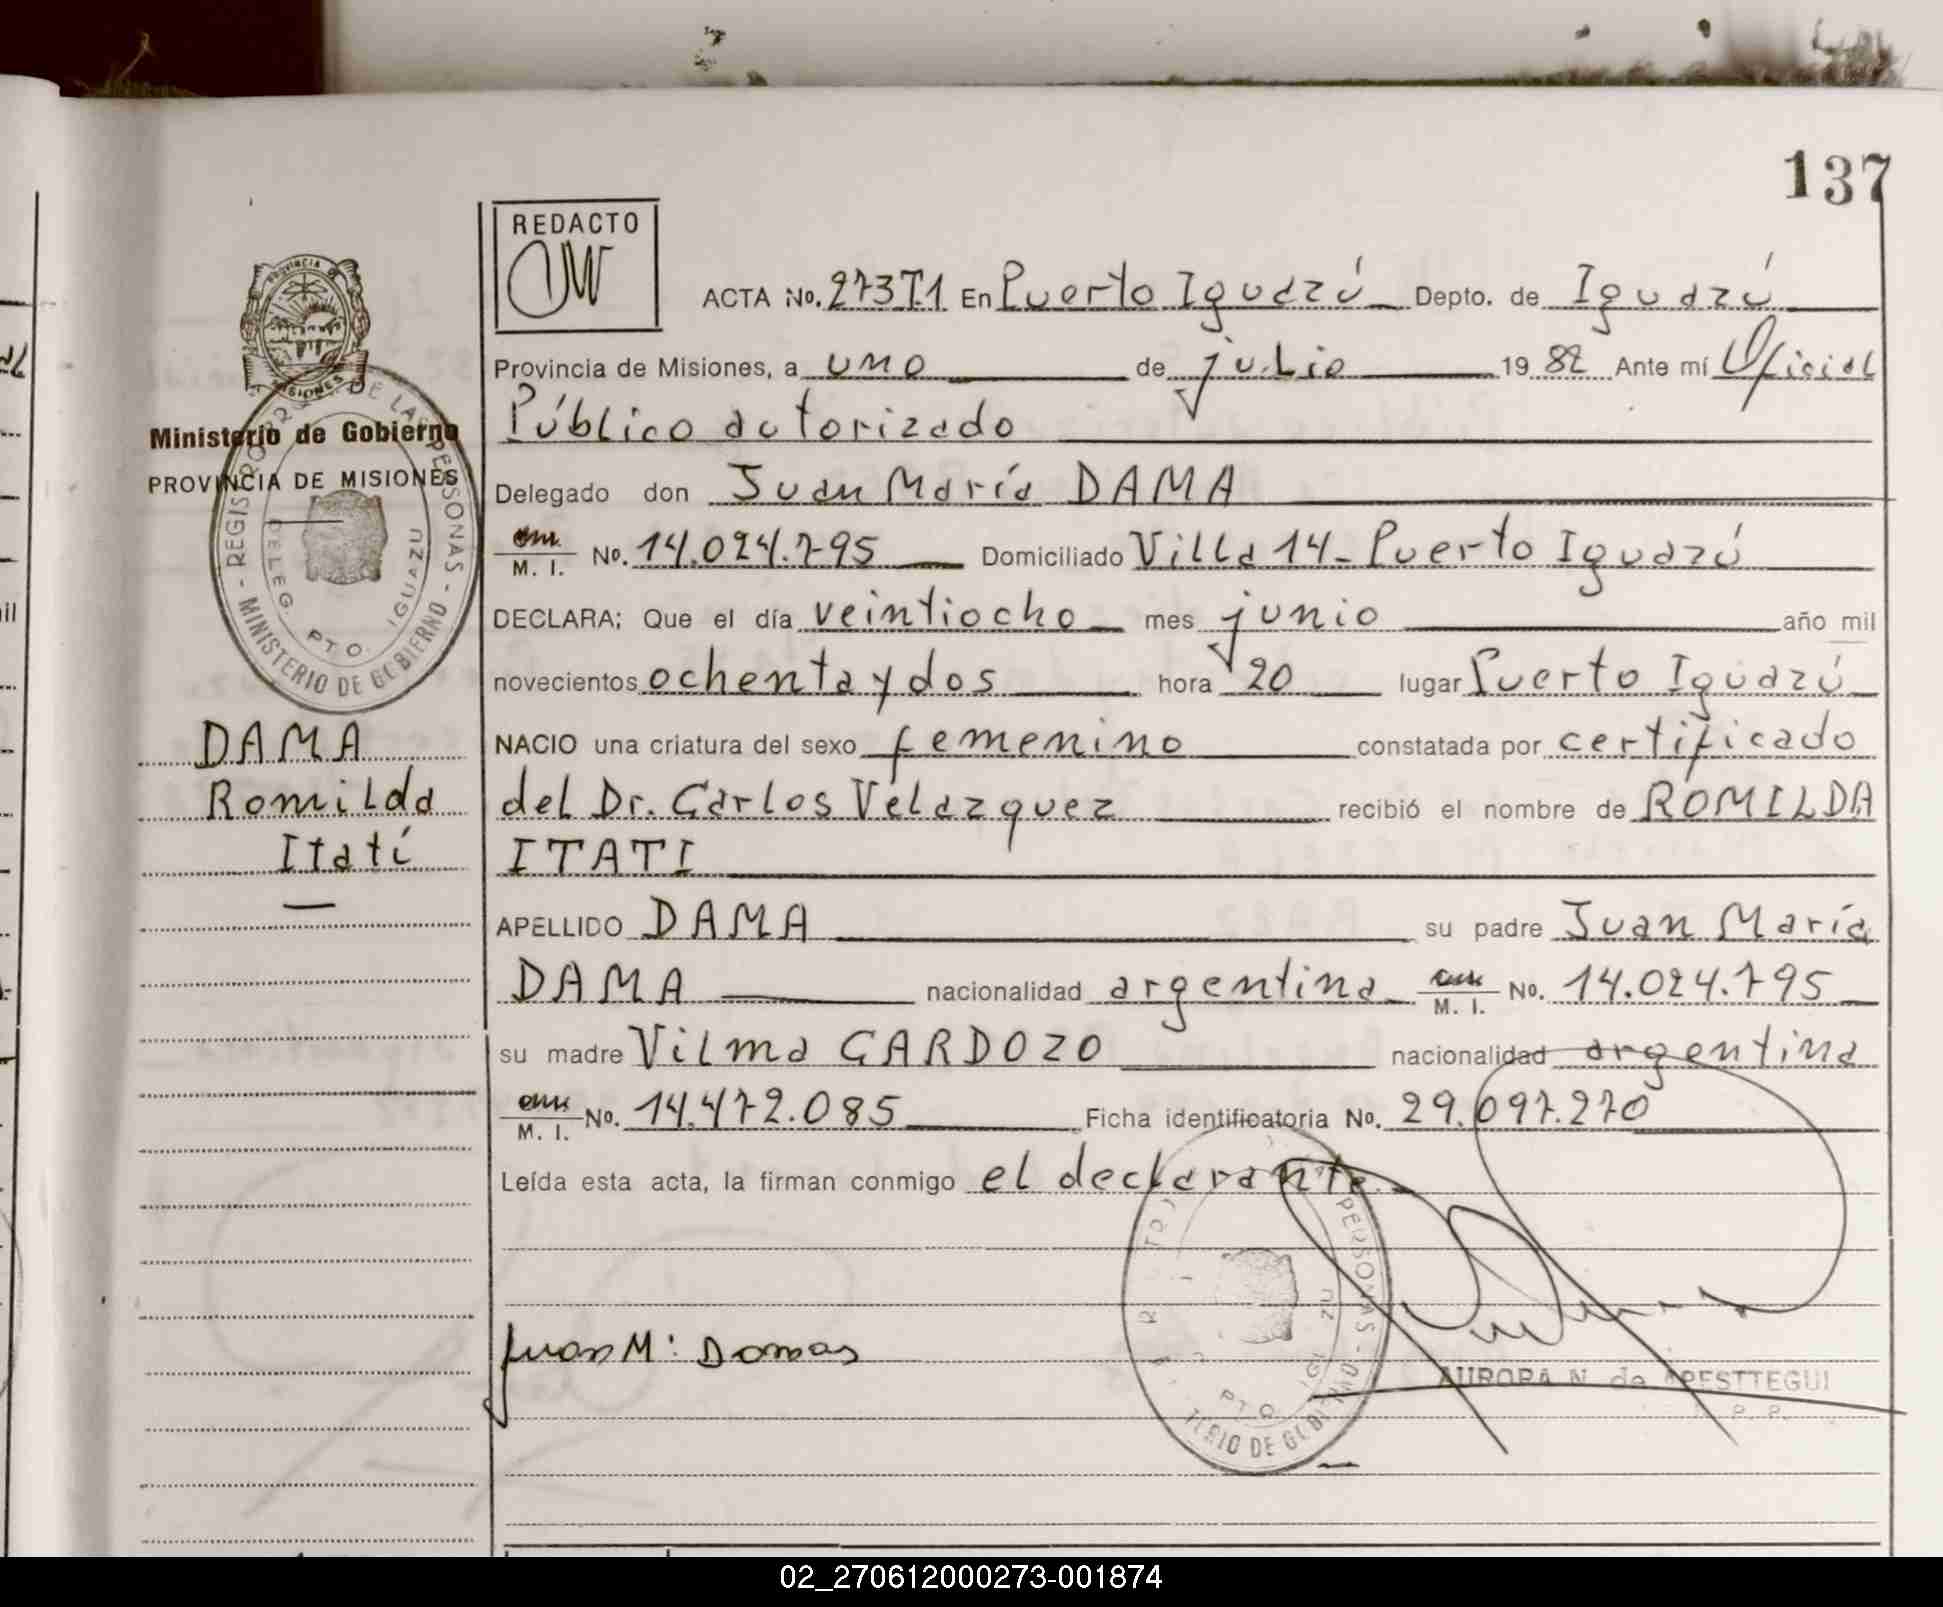 137
REDACTO
ACTA No. 273T1 En Puerto Iguazú Depto. de Iguazú
Provincia de Misiones, a uno de julio 1982 Ante mí Oficial
Público autorizado
Delegado don Juan María DAMA
M. I. No. 14.024.795 Domiciliado Villa 14 - Puerto Iguazú
DECLARA; Que el día veintiocho mes junio año mil
novecientos ochenta y dos hora 20 lugar Puerto Iguazú
NACIO una criatura del sexo femenino constatada por certificado
del Dr. Carlos Velazquez recibió el nombre de ROMILDA
ITATI
APELLIDO DAMA su padre Juan María
DAMA nacionalidad argentina M. I. No. 14.024.795
su madre Vilma CARDOZO nacionalidad argentina
M. I. No. 14.472.085 Ficha identificatoria No. 29.097.270
Leída esta acta, la firman conmigo el declarante.-
Juan Mª: Damas
AURORA N. de APESTTEGUI
PROVINCIA DE MISIONES
Ministerio de Gobierno
PROVINCIA DE MISIONES
REGISTRO DE LAS PERSONAS - MINISTERIO DE GOBIERNO -
DELEG. PTO. IGUAZU
DAMA
Romilda
Itatí
PERSONAS -
PTO.
DE GOBI
02_270612000273-001874